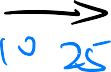 10 25